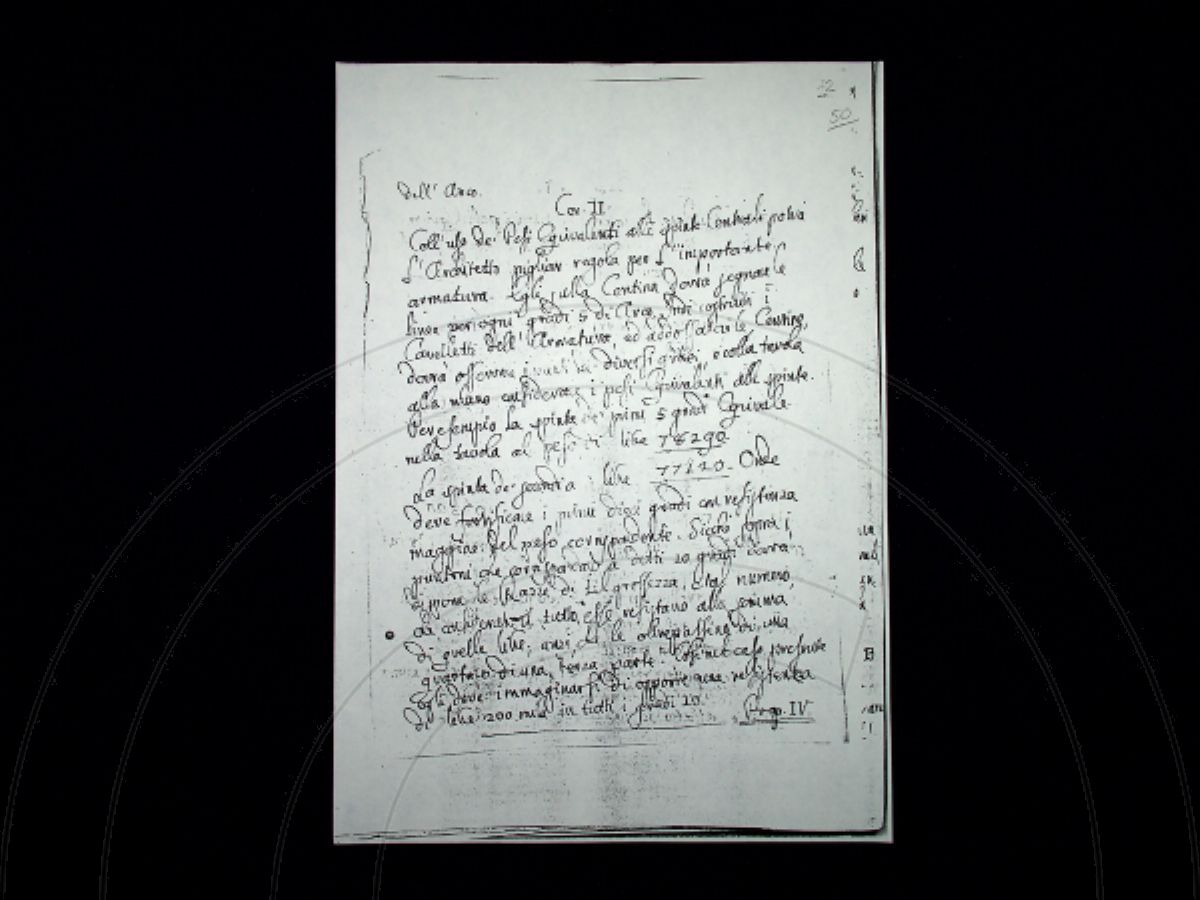 12
50
dell' Arco.
Cor. II
Coll' uso de' Pesi Equivalenti alle spinte Centrali potrà
l'Architetto pigliar regola per l'importante
armatura. Egli sulla Centina dovrà segnare le
linee per ogni gradi 5 di Arco, indi costruir i
Cavalletti dell' Armatura, ed addossarvi le Centine,
dovrà osservare i diversi gradi, e colla tavola
alla mano considerare i pesi Equivalenti alle spinte.
Per esempio la spinta de' primi 5 gradi Equivale
nella tavola al peso di libre 78290.
La spinta de' secondi a libre 77120. Onde
deve fortificare i primi dieci gradi con resistenza
maggiore del peso corrispondente. Sicché sopra i
puntoni che corrispondono a detti 10 gradi dovrà
di tal grossezza, e tal numero,
che resistano alla somma
di quelle libre, anzi che le oltrepassino di una
quarta, o di una terza parte. Così nel caso presente
Egli deve immaginarsi di opporre una resistenza
di libre 200 mila in tutti i gradi 10.
Prop. IV